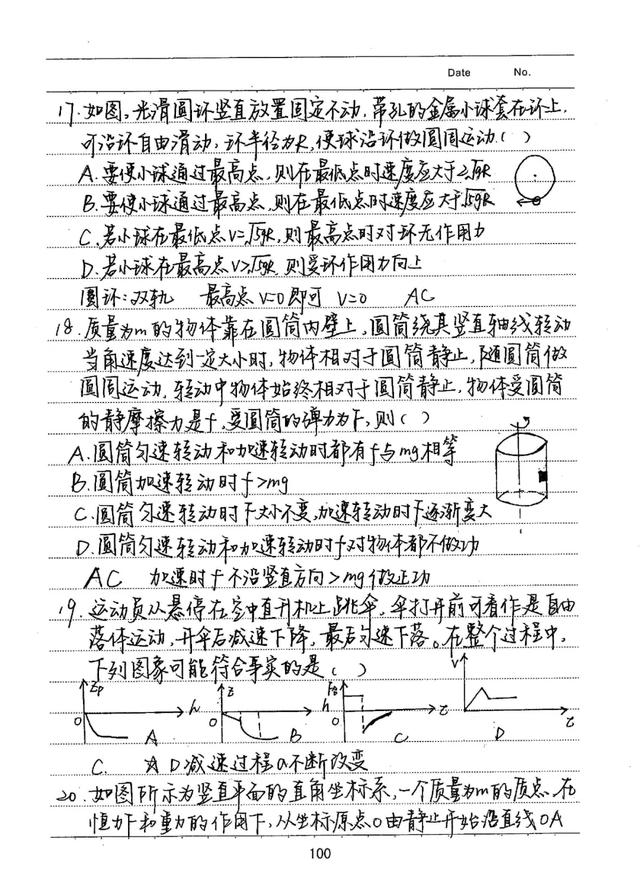 Date No.
17.如图,光滑圆环竖直放置固定不动,带孔的金属小球套在环上,
可沿环自由滑动,环半径为R,使球沿环做圆周运动( )
A.要使小球通过最高点,则在最低点时速度应大于2√gR
B.要使小球通过最高点,则在最低点时速度应大于√5gR
C.若小球在最低点v=√5gR,则最高点时对环无作用力
D.若小球在最高点v>√5gR,则受环作用力向上
圆环:双轨 最高点v=0即可 v=0 AC
18.质量为m的物体靠在圆筒内壁上,圆筒绕其竖直轴线转动
当角速度达到一定大小时,物体相对于圆筒静止,随圆筒做
圆周运动,转动中物体始终相对于圆筒静止,物体受圆筒
的静摩擦力是f,受圆筒的弹力为F,则( )
A.圆筒匀速转动和加速转动时都有f与mg相等
B.圆筒加速转动时f>mg
C.圆筒匀速转动时F大小不变,加速转动时F逐渐变大
D.圆筒匀速转动和加速转动时f对物体都不做功
AC 加速时f不沿竖直方向>mg做正功
19.运动员从悬停在空中直升机上跳伞,伞打开前可看作是自由
落体运动,开伞后减速下降,最后匀速下落。在整个过程中,
下列图象可能符合事实的是( )
Ep h O A
E h O B
t O C
V t D
C. AD减速过程a不断改变
20.如图所示为竖直平面的直角坐标系,一个质量为m的质点,在
恒力F和重力的作用下,从坐标原点O由静止开始沿直线OA
100